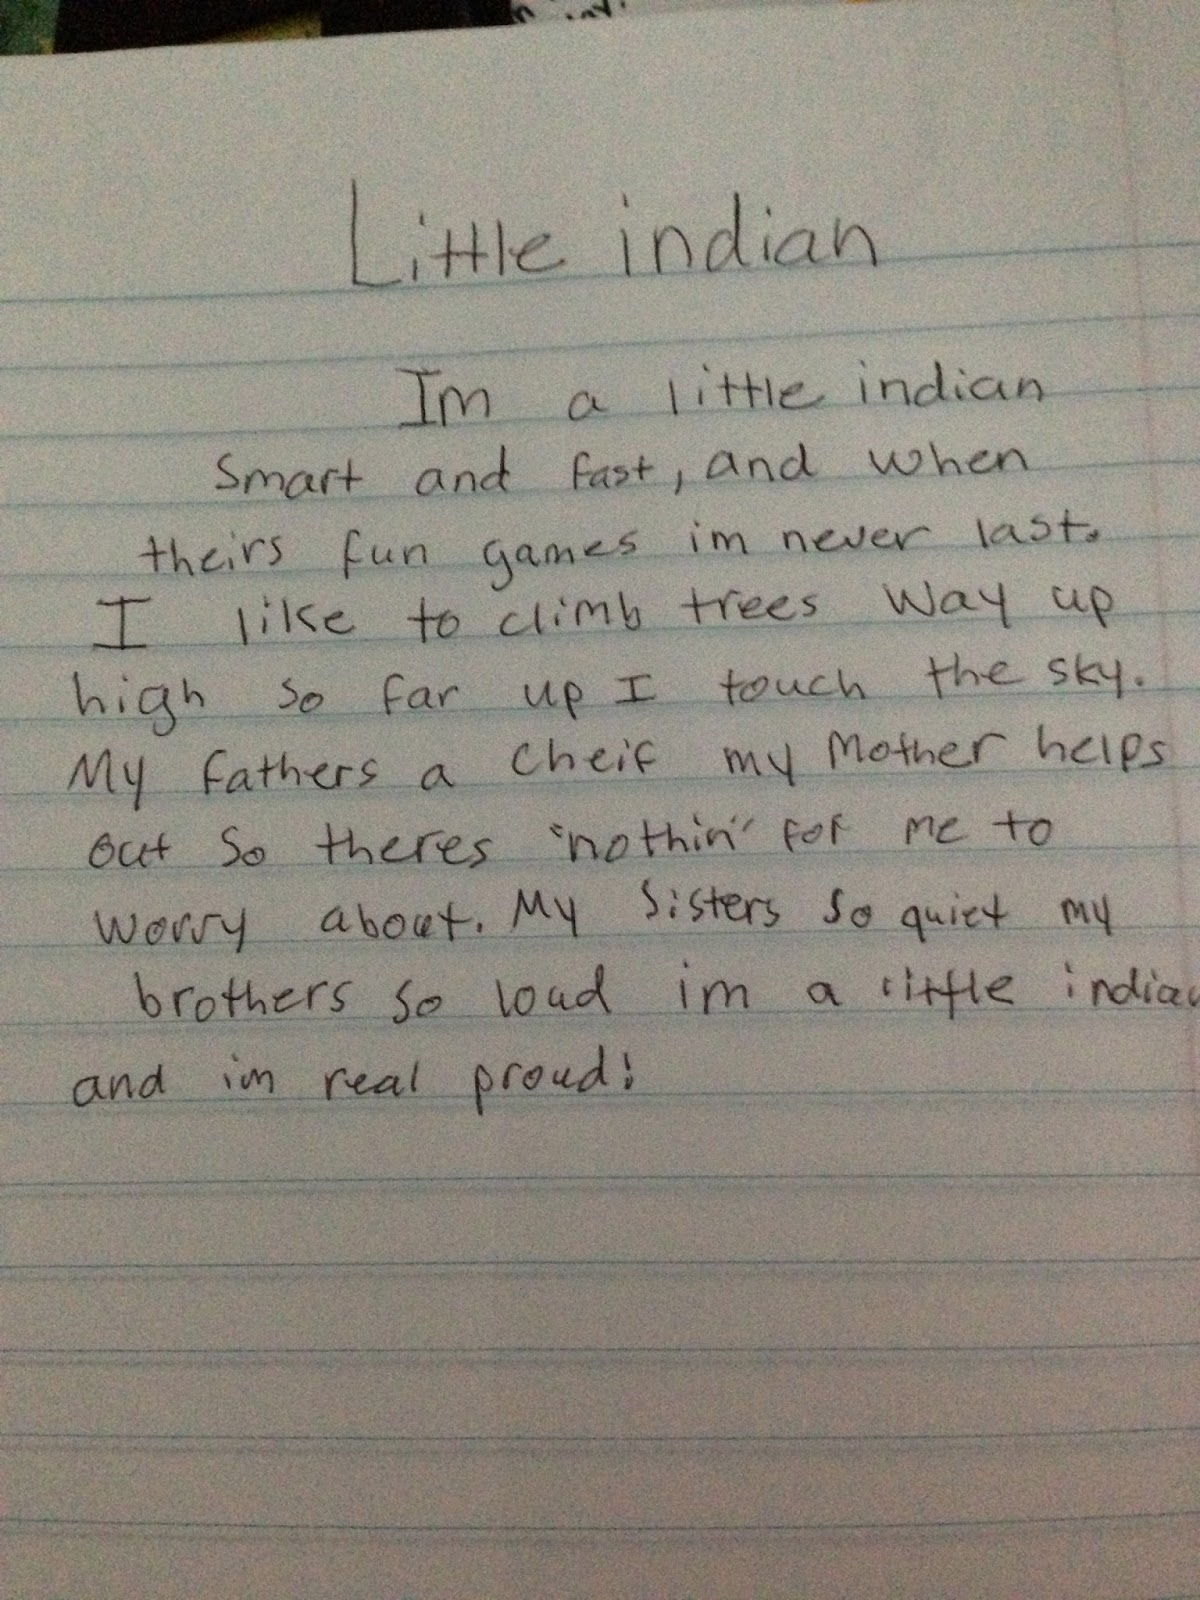 Little indian
Im a little indian
Smart and fast, and when
theirs fun games im never last.
I like to climb trees way up
high so far up I touch the sky.
My fathers a cheif my Mother helps
out so theres "nothin" for me to
worry about. My sisters so quiet my
brothers so loud im a little indian
and im real proud!